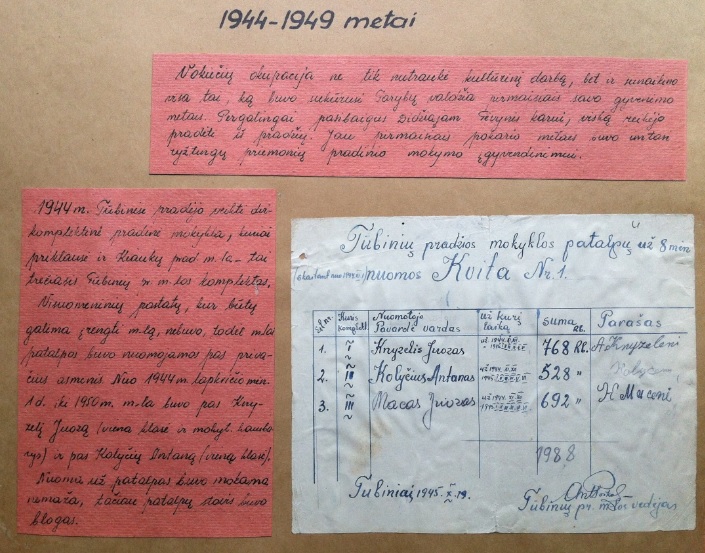 1944-1949 metai
Vokiečių okupacija ne tik nutraukė kultūrinį darbą, bet ir sunaikino
visa tai, ką buvo sukūrusi Tarybų valdžia pirmaisiais savo gyvenimo
metais. Pergalingai pasibaigus Didžiajam Tėvynės karui, viską reikėjo
pradėti iš pradžių. Jau pirmaisiais pokario metais buvo imtasi
ryžtingų priemonių pradinio mokymo įgyvendinimui.
1944 m. Tūbinėse pradėjo veikti dvi-
komplektinė pradinė mokykla, kuriai
priklausė ir Kiaukų prad. m-la - tai
trečiasis Tūbinių pr. m-los komplektas.
Visuomeninių pastatų, kur būtų
galima įrengti m-lą, nebuvo, todėl m-los
patalpos buvo nuomojamos pas priva-
čius asmenis. Nuo 1944 m. lapkričio mėn.
1 d. iki 1950 m. m-la buvo pas Kny-
zelį Juozą (viena klasė ir mokyt. kamba-
rys) ir pas Kolyčių Antaną (vieną klasę).
Nuoma už patalpas buvo mokama
nemaža, tačiau patalpų stovis buvo
blogas.
Tūbinių pradžios mokyklos patalpų už 8 mėn
nuomos Kvita Nr. 1.
Eil. nr. Kuris komplekt. Nuomotojo Pavardė vardas Už kurį laiką Suma Rb. Parašas
1. I Knyzelis Juozas 768 Rb. A Knyzeleni
2. II Kolyčius Antanas 528 "
3. III Macas Juozas 692 " H. Maceni
1988
Tubiniai, 1945. X. 19.
Tūbinių pr. m-los vedėjas